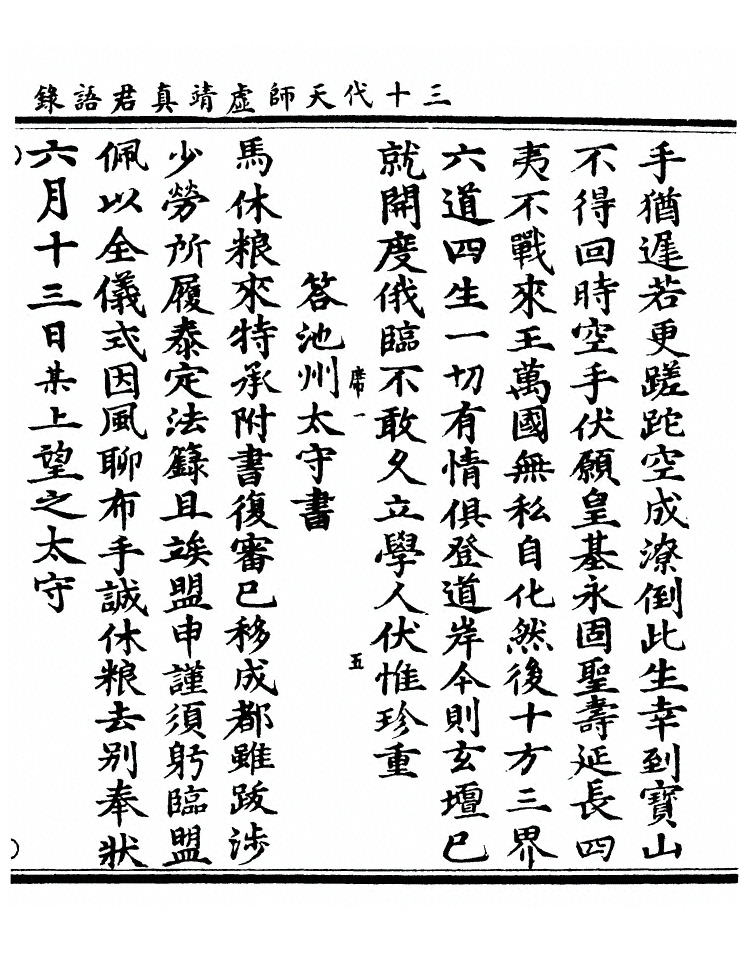 三十代天師虛靖真君語錄
手猶遲若更蹉跎空成潦倒此生幸到寶山
不得回時空手伏願皇基永固聖壽延長四
夷不戰來王萬國無私自化然後十方三界
六道四生一切有情俱登道岸今則玄壇已
就開度俄臨不敢久立學人伏惟珍重
席一
五
答池州太守書
馬休粮來特承附書復審已移成都雖跋涉
少勞所履泰定法籙且竢盟申謹須躬臨盟
佩以全儀式因風聊布手誠休粮去別奉狀
六月十三日某上望之太守